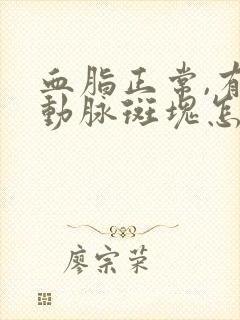 血脂正常,有
動脉斑塊怎
廖宗荣